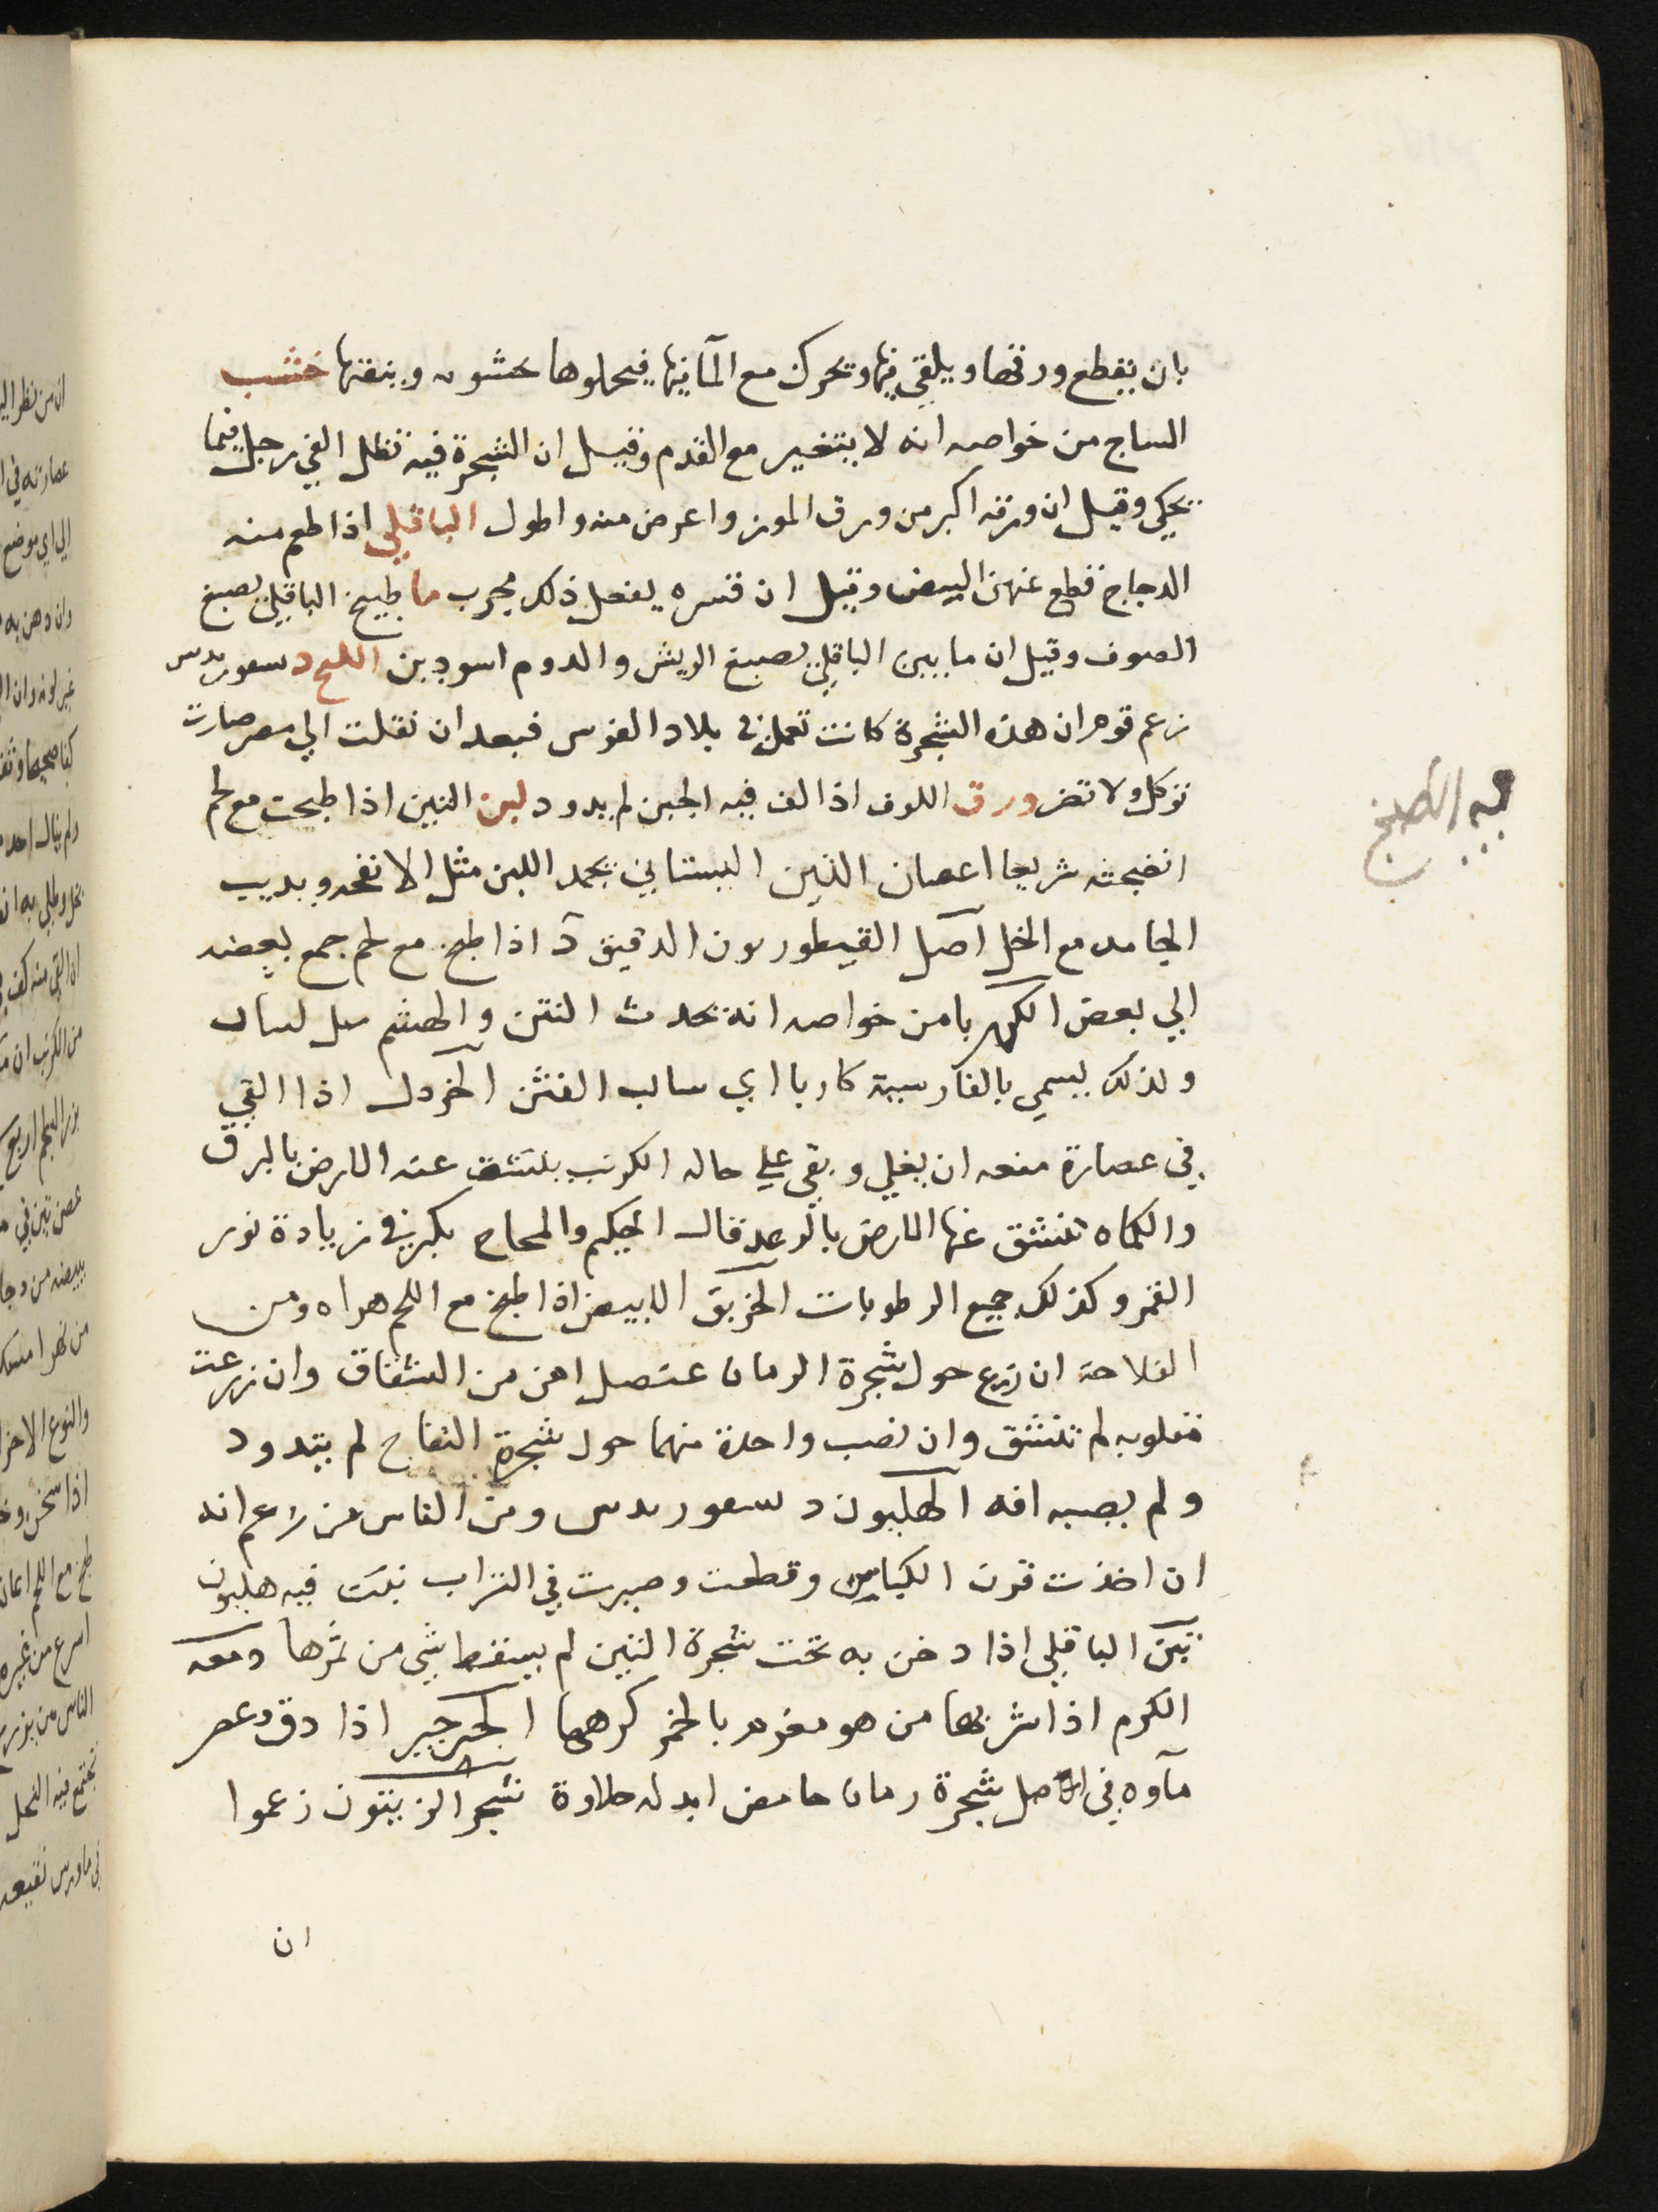 بان يقطع ورقها ويلقي فيها وتحرك مع المآ فيها فيحلوها خشونه وينقيها خشب
الساج من خواصه انه لا يتغير مع القدم وقيل ان الشجرة فيه تظل الفي رجل فيما
يحكي وقيل ان ورقه اكبر من ورق الموز واعرض منه واطول الباقلي اذا طعم منه
الدجاج قطع عنهن البيض وقيل ان قشره يفعل ذلك مجرب ما طبيخ الباقلي يصبغ
الصوف وقيل ان ما بين الباقلي يصبغ الريش والدوم اسودين اللبخ دسعوريدس
زعم قوم ان هذه الشجرة كانت تعمل في بلاد الفرس فبعد ان نقلت الي مصر صارت
توكل ولا تضر ورق اللوف اذا لف فيه الجبن لم يدود لبن التين اذا طبخت مع لحم
انضجته سريعا اغصان التين البستاني يجمد اللبن مثل الانفحه ويديب
الجامد مع الخل آصل القيطوريون الدقيق اذا طبخ مع لحم جمع بعضه
الي بعض الكهربا من خواصه انه يحدث النتن والهشيم
ولذلك يسمي بالفارسية كاربا اي سالب التبن الخردل اذا القي
في عصارة منعه ان يغلي وبقي علي حاله الكرنب ينشق عنه الارض بالبرق
والكماه تنشق عنها الارض بالرعد قال الحكيم والمحاح يكبر في زيادة نور
القمر وكذلك جميع الرطوبات الخربق الابيض اذا طبخ مع اللحم هراه ومن
الفلاحة ان زرع حول شجرة الرمان عنصل امن من التشقاق وان زرعت
مقلوبه لم تنشق وان نصب واحدة منهما حول شجرة التفاح لم يتدود
ولم يصبه افه الهليون دسعوريدس ومن الناس من زعم انه
ان اخذت قرون الكباش وقطعت وصيرت في التراب نبت فيه هليون
تبن الباقلي اذا دخن به تحت شجرة التين لم يسقط شي من ثمرها دمعه
الكرم اذا شربها من هو مغرم بالخمر كرهها الجرجير اذا دق وعصر
مآوه في اصل شجرة رمان حامض ابدله حلاوة شجر الزيتون زعموا
ان
فيه الطبخ